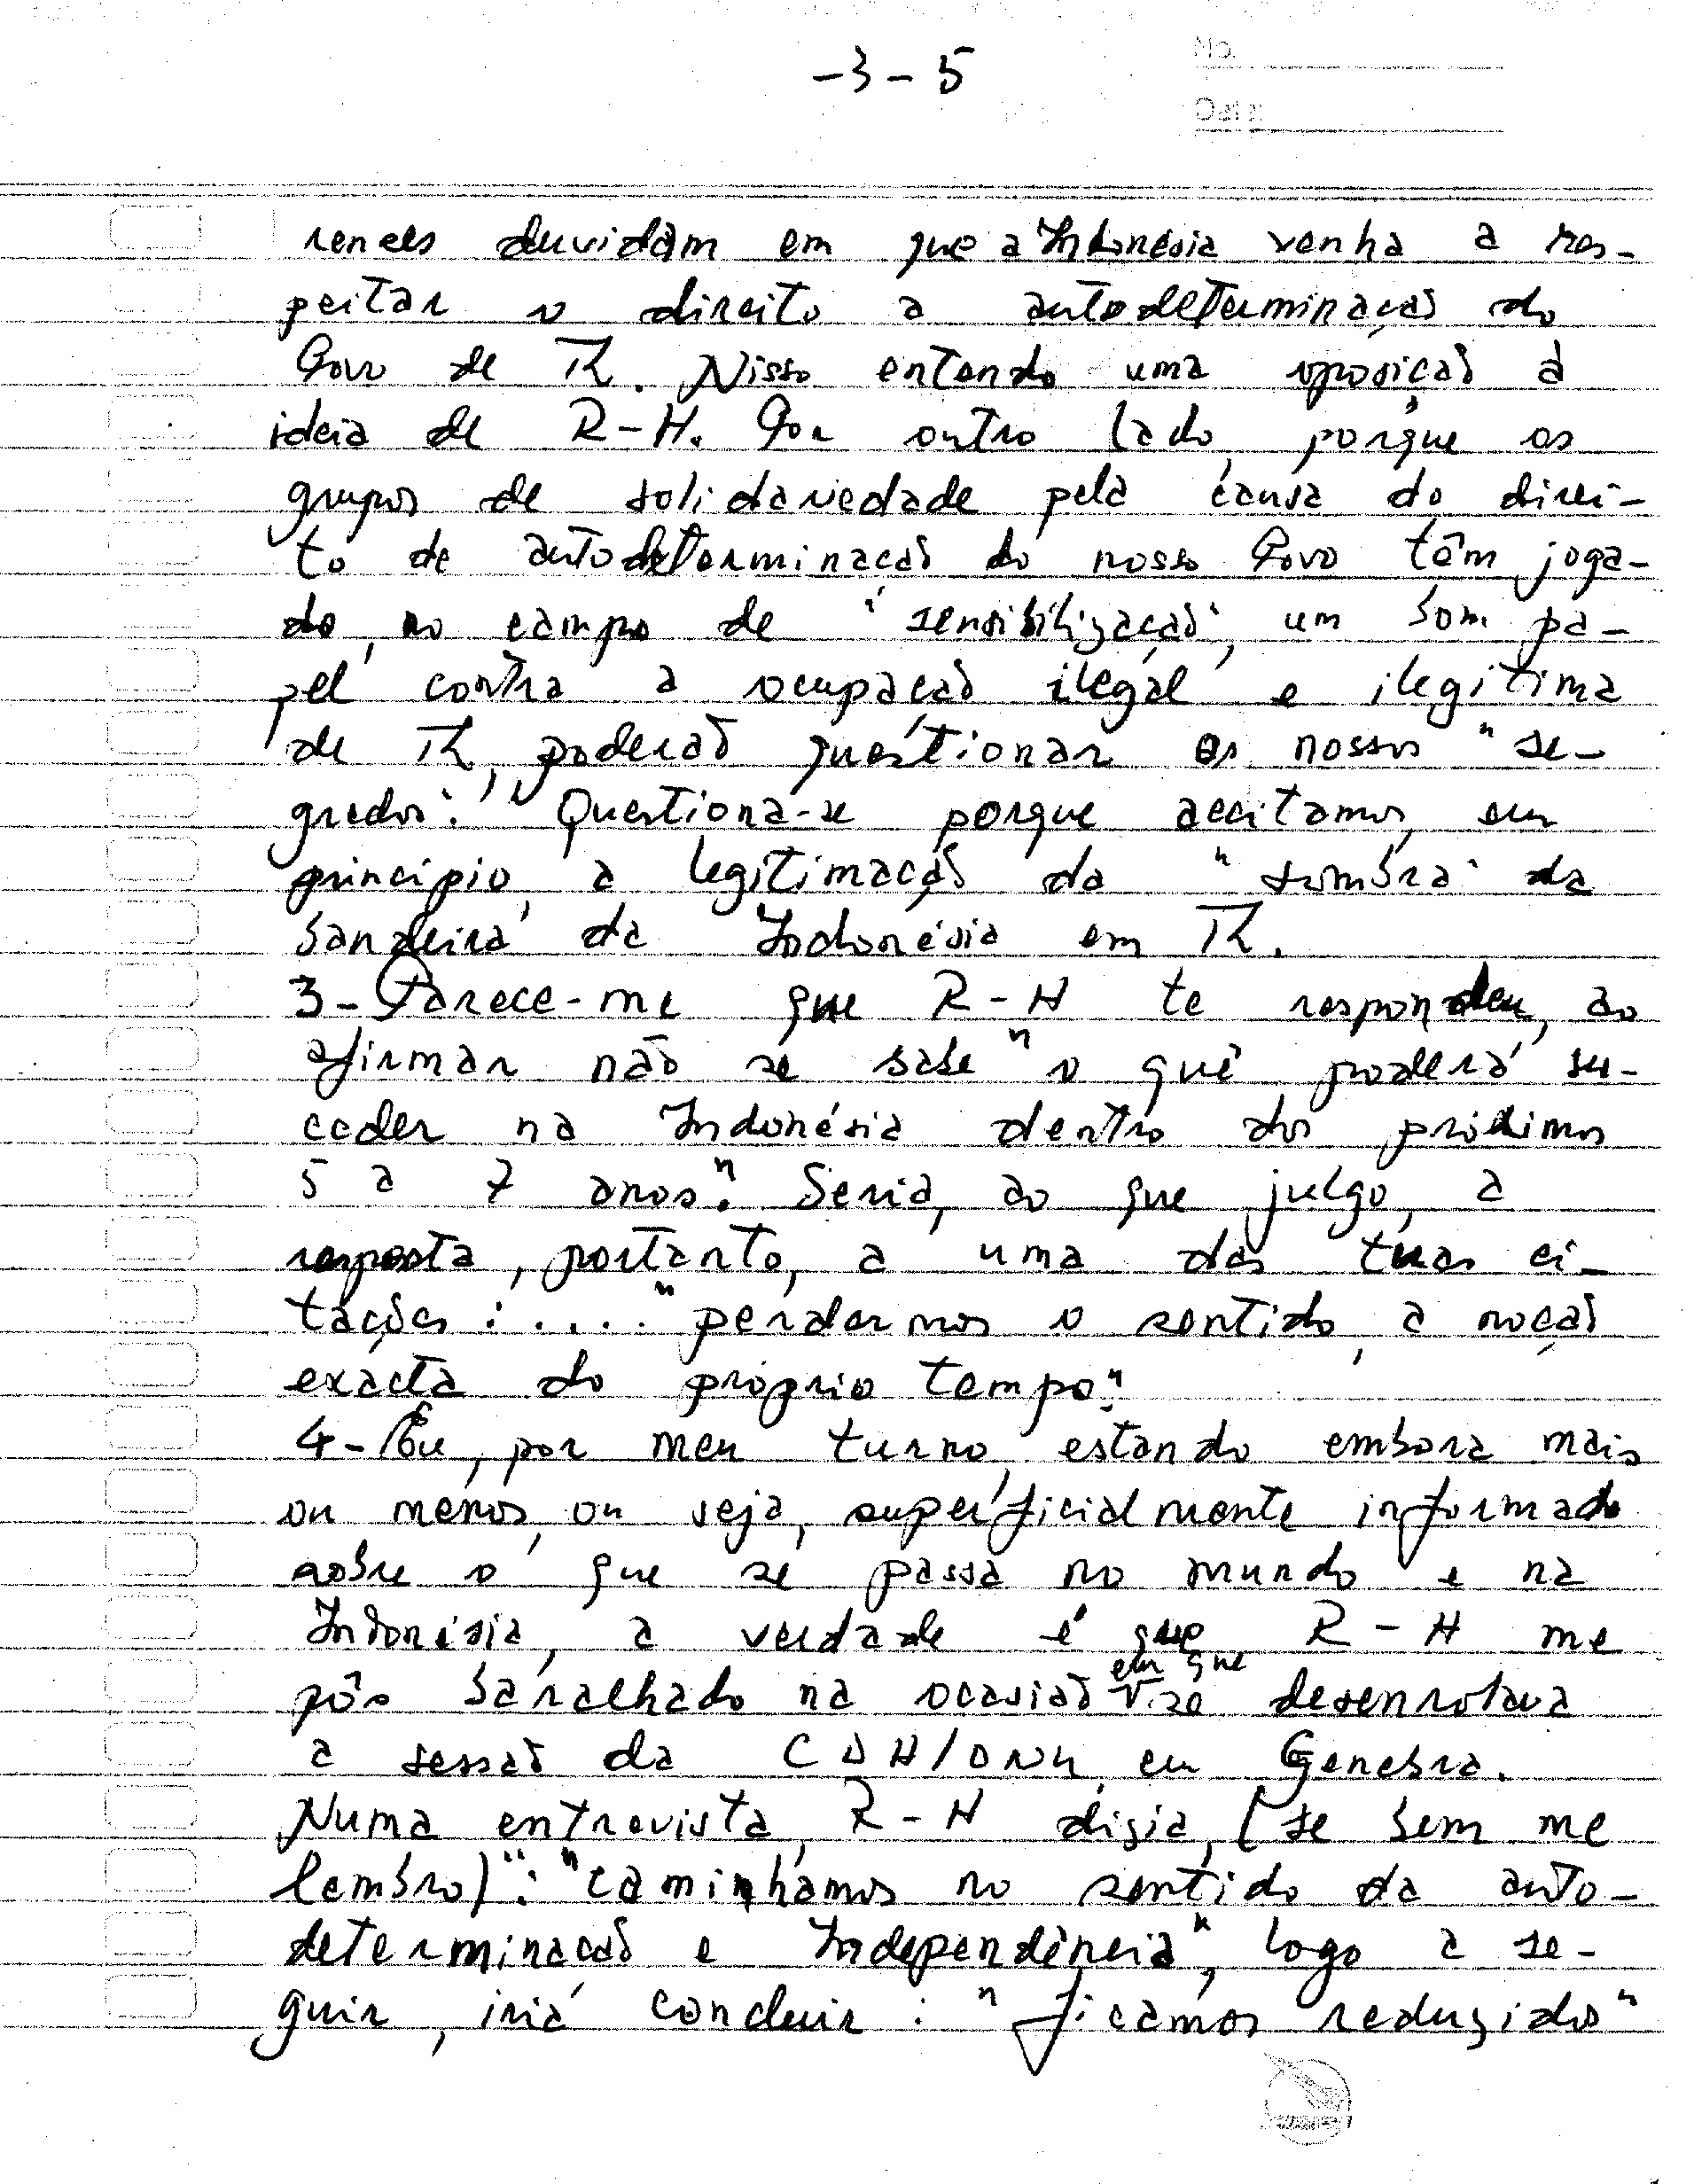 -3-5
No.
Date
renses duvidam em que a Indonésia venha a res-
peitar o direito a autodeterminação do
Povo de TL. Nisso entendo uma oposição à
ideia de R-H. Por outro lado, porque os
grupos de solidariedade pela causa do direi-
to de autodeterminação do nosso Povo têm joga-
do, no campo de "sensibilização", um bom pa-
pel contra a ocupação ilegal e ilegítima
de TL, poderão questionar os nossos "se-
gredos". Questiona-se porque aceitamos, em
princípio, a legitimação da "sombra" da
bandeira da Indonésia em TL.
3- Parece-me que R-H te respondeu, ao
afirmar não se sabe "o quê poderá su-
ceder na Indonésia dentro dos próximos
5 a 7 anos". Seria, ao que julgo, a
resposta, portanto, a uma das tuas ci-
tações: .... "perdermos o sentido, a noção
exacta do próprio tempo".
4- Eu, por meu turno, estando embora mais
ou menos, ou seja, superficialmente informado
sobre o que se passa no mundo e na
Indonésia, a verdade é que R-H me
pôs baralhado na ocasião em que se desenrolava
a sessão da CDH/ONU, em Genebra.
Numa entrevista, R-H dizia, (se bem me
lembro)": "caminhamos no sentido da auto-
determinação e Independência", logo a se-
guir, iria concluir: "ficámos reduzidos"